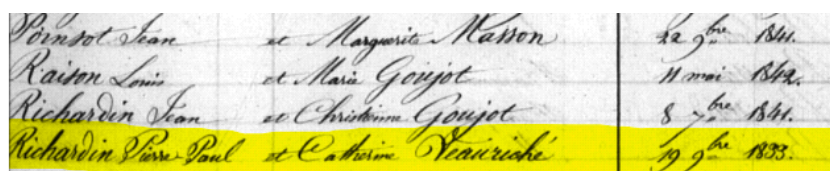 Poinsot Jean et Marguerite Masson 22 9bre 1841.
Raison Louis et Marie Goujot 11 mai 1842.
Richardin Jean et Christinne Goujot 8 7bre 1841.
Richardin Pierre Paul et Catherine Veauriché 19 9bre 1833.